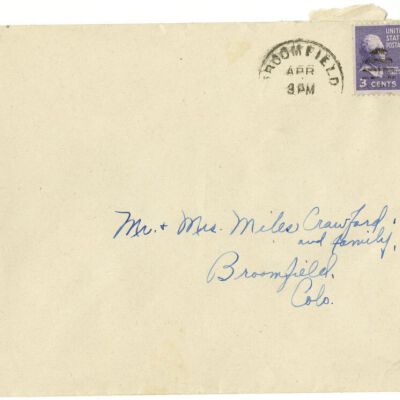 BROOMFIELD
APR
3 PM
UNITED
STATES
POSTAGE
3 CENTS
Mr. + Mrs. Miles Crawford.
and family,
Broomfield,
Colo.